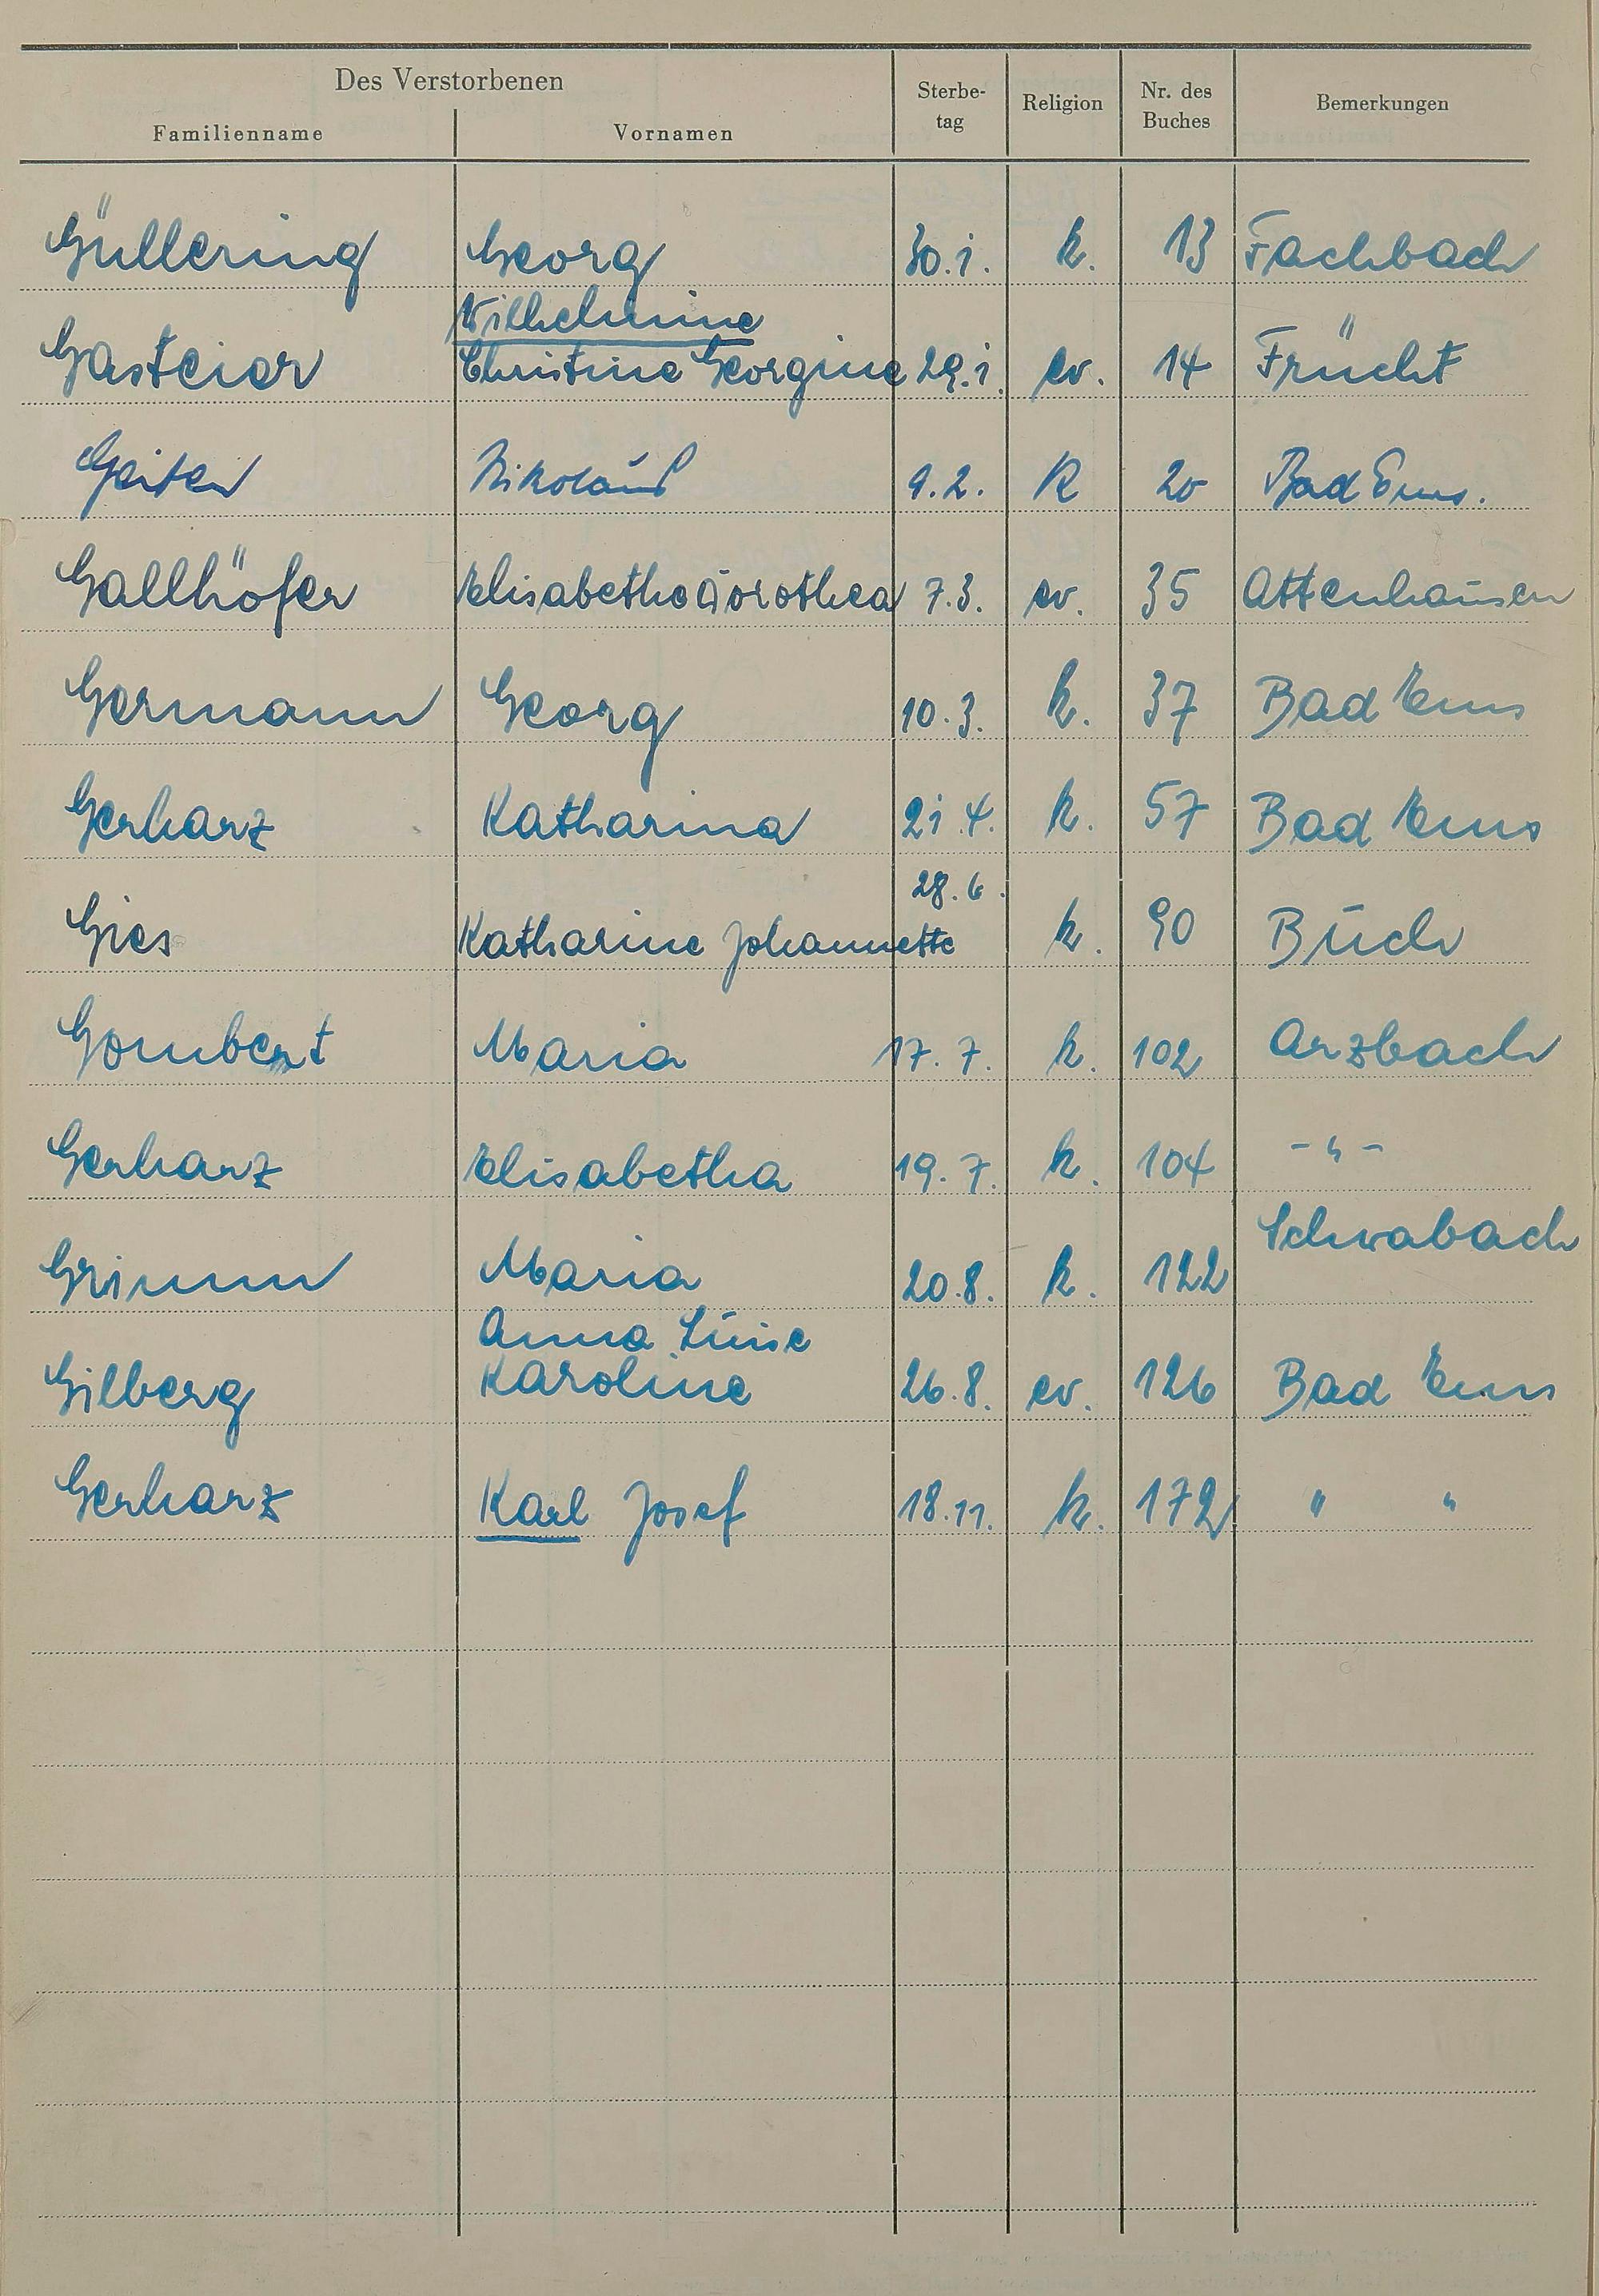 Des Verstorbenen
Familienname Vornamen Sterbe-tag Religion Nr. des Buches Bemerkungen
Güllering Georg 30.1. k. 13 Fachbach
Wilhelmine
Gasteier Christine Georgine 29.1. ev. 14 Frücht
Nikolaus 9.2. K 20 Bad Ems.
Gallhöfer Elisabethe Dorothea 7.3. ev. 35 Attenhausen
Germann Georg 10.3. k. 37 Bad Ems
Gerharz Katharina 21.4. k. 57 Bad Ems
28.6.
Gies Katharine Johannette k. 90 Buch
Gombert Maria 17.7. k. 102 Arzbach
Gerharz Elisabetha 19.7. k. 104 - " -
Schwabach
Grimm Maria 20.8. k. 122
Anna Luise
Gilberg Karoline 26.8. ev. 126 Bad Ems
Gerharz Karl Josef 18.11. k. 172 " "